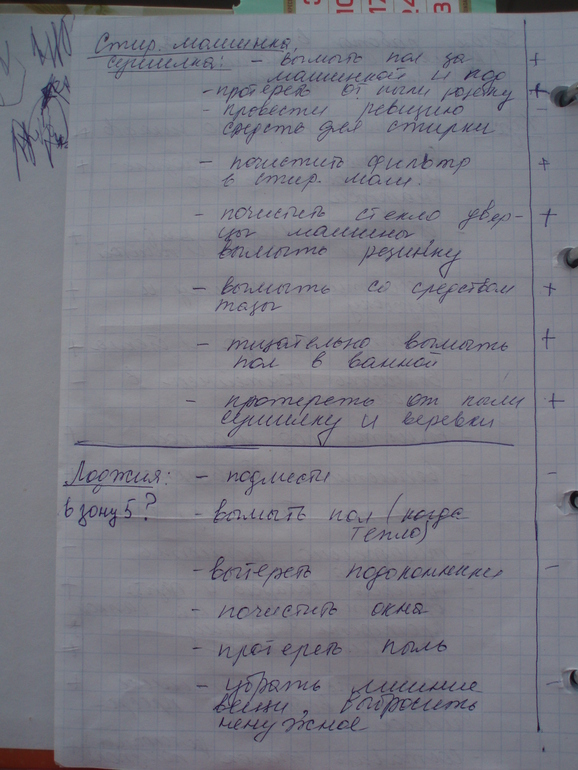 Стир. машинка,
сушилка: - вымыть пол за +
машинкой и под
- протереть от пыли розетку +
- провести ревизию -
средств для стирки
- почистить фильтр +
в стир. маш.
- почистить стекло у двер- +
цы машины
вымыть резинку
- вымыть со средством +
тазы
- тщательно вымыть +
пол в ванной
- протереть от пыли +
сушилку и веревки
Лоджия: - подмести -
в зону 5? - вымыть пол (когда
тепло)
- вытереть подоконники -
- почистить окна
- протереть пыль
- убрать лишние -
вещи, выбросить
ненужное